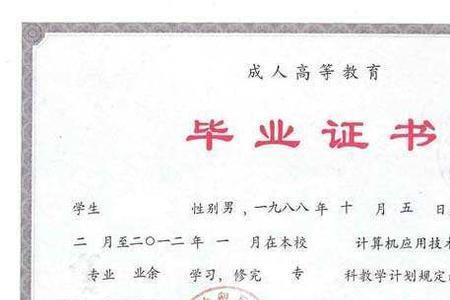 成人高等教育
毕业证书
学生 性别男，一九八八年 十 月 五 日
二 月至二〇一二年 一 月在本校 计算机应用技术
专业 业余 学习，修完 专 科教学计划规定